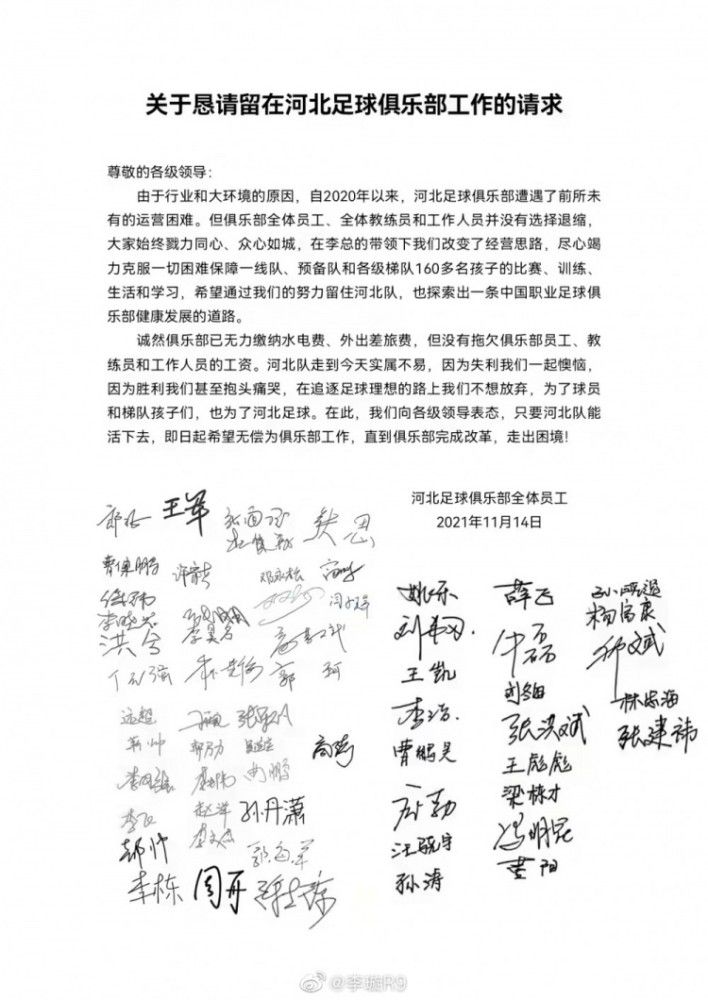 关于恳请留在河北足球俱乐部工作的请求
尊敬的各级领导：
由于行业和大环境的原因，自2020年以来，河北足球俱乐部遭遇了前所未
有的运营困难。但俱乐部全体员工、全体教练员和工作人员并没有选择退缩，
大家始终戮力同心、众心如城，在李总的带领下我们改变了经营思路，尽心竭
力克服一切困难保障一线队、预备队和各级梯队160多名孩子的比赛、训练、
生活和学习，希望通过我们的努力留住河北队，也探索出一条中国职业足球俱
乐部健康发展的道路。
诚然俱乐部已无力缴纳水电费、外出差旅费，但没有拖欠俱乐部员工、教
练员和工作人员的工资。河北队走到今天实属不易，因为失利我们一起懊恼，
因为胜利我们甚至抱头痛哭，在追逐足球理想的路上我们不想放弃，为了球员
和梯队孩子们，也为了河北足球。在此，我们向各级领导表态，只要河北队能
活下去，即日起希望无偿为俱乐部工作，直到俱乐部完成改革，走出困境！
河北足球俱乐部全体员工
2021年11月14日
王军
姚乐
薛飞
王凯
李浩
张洪斌
曹鹏昊
王彪彪
高勃
梁栋才
汪晓宇
冯明昆
孙涛
黄阳
杨富康
林忠海
张建祎
远超
曲鹏
赵洋
孙丹潇
郝帅
李栋
周开
郭
珂
@李璇R9